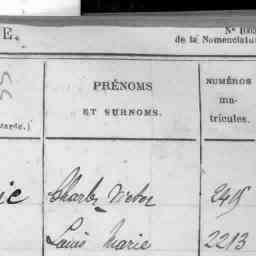 E. N° 1005
de la Nomenclatu
PRÉNOMS
ET SURNOMS.
NUMÉROS
ma-
tricules.
ie Charles Victor
Louis Marie 2213